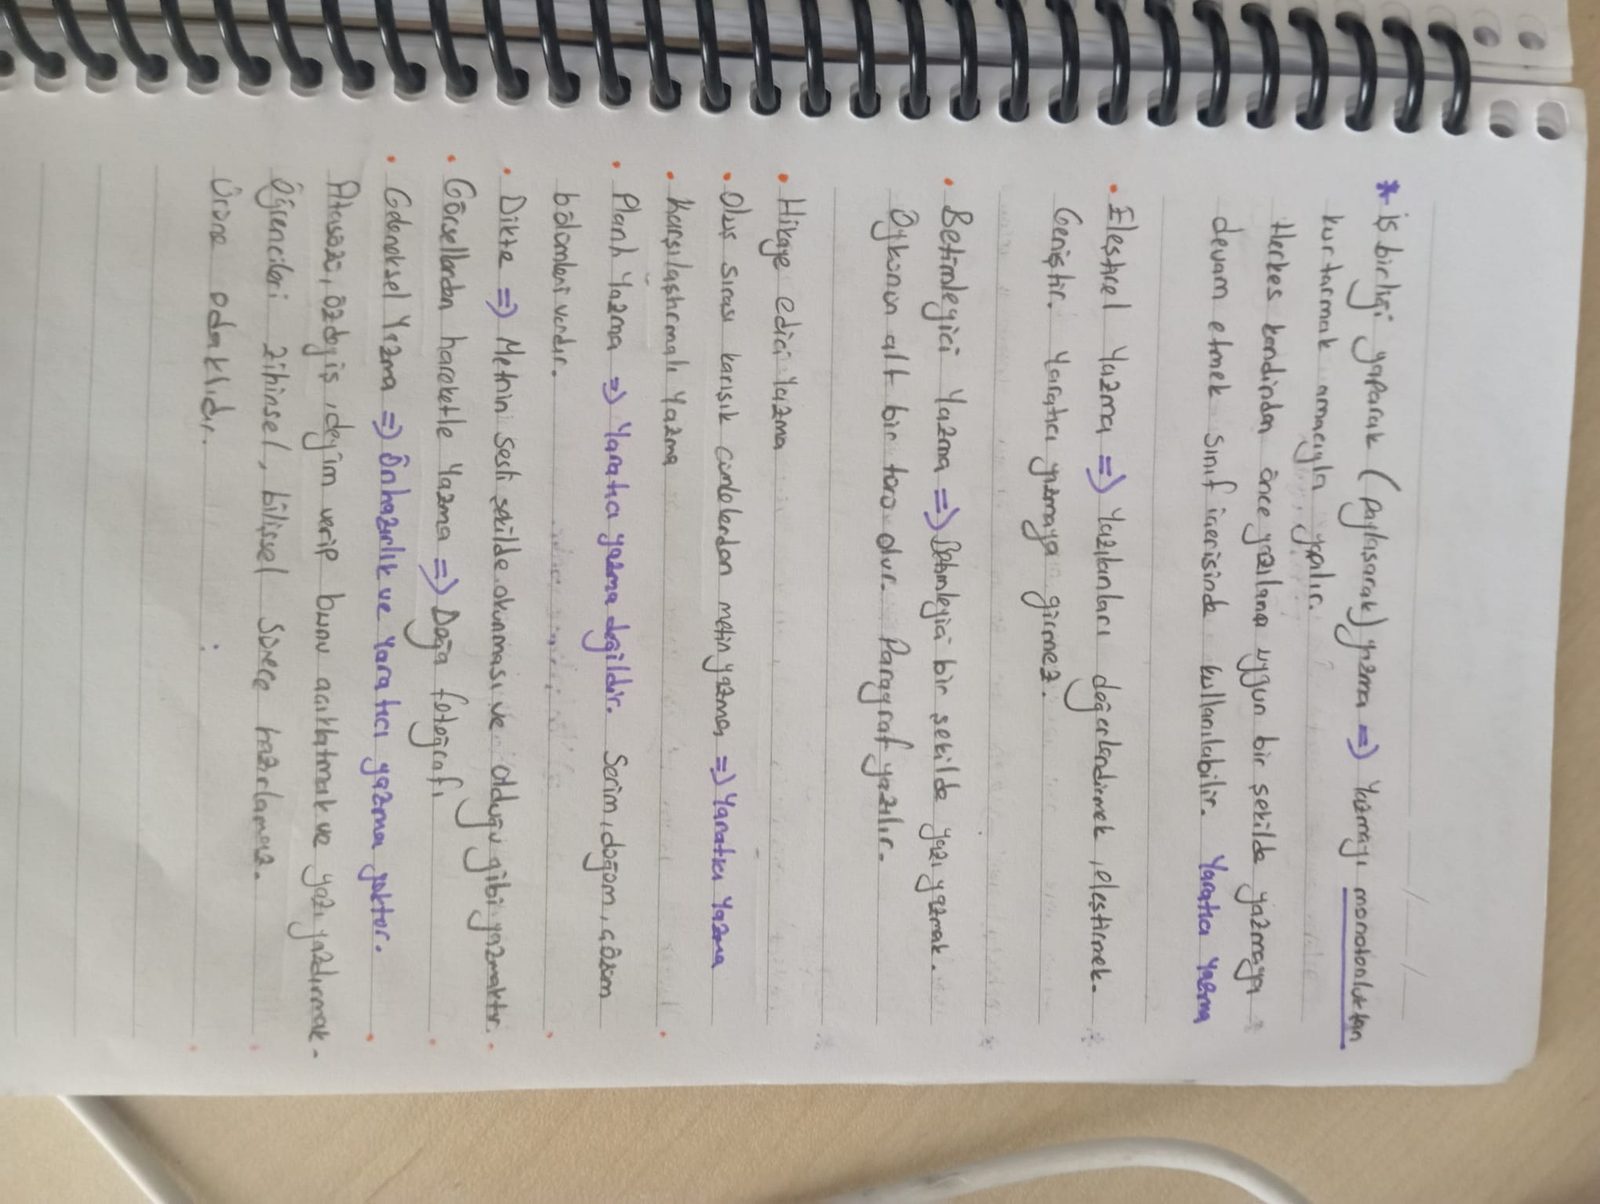 * İş birliği yaparak (paylaşarak) yazma => Yazmayı monotonluktan
kurtarmak amacıyla yapılır.
Herkes kendinden önce yazılana uygun bir şekilde yazmaya
devam etmek sınıf içerisinde kullanılabilir. Yaratıcı Yazma
• Eleştirel Yazma => Yazılanları değerlendirmek, eleştirmek.
Geniştir. Yaratıcı yazmaya girmez.
• Betimleyici Yazma => Betimleyici bir şekilde yazı yazmak.
Öykünün alt bir türüdür. Paragraf yazılır.
• Hikaye edici Yazma
• Oluş sırası karışık cümlelerden metin yazma => Yaratıcı Yazma
• Karşılaştırmalı Yazma
• Planlı Yazma => Yaratıcı yazma değildir. Serim, düğüm, çözüm
bölümleri vardır.
• Dikte => Metnin sesli şekilde okunması ve olduğu gibi yazmaktır.
• Görsellerden hareketle Yazma => Doğa fotoğrafı
• Geleneksel Yazma => Önhazırlık ve Yaratıcı yazma yoktur.
Atasözü, özdeyiş, deyim verip bunu açıklatmak ve yazı yazdırmak.
Öğrencileri zihinsel, bilişsel sürece hazırlamaz.
Ürüne odaklıdır.